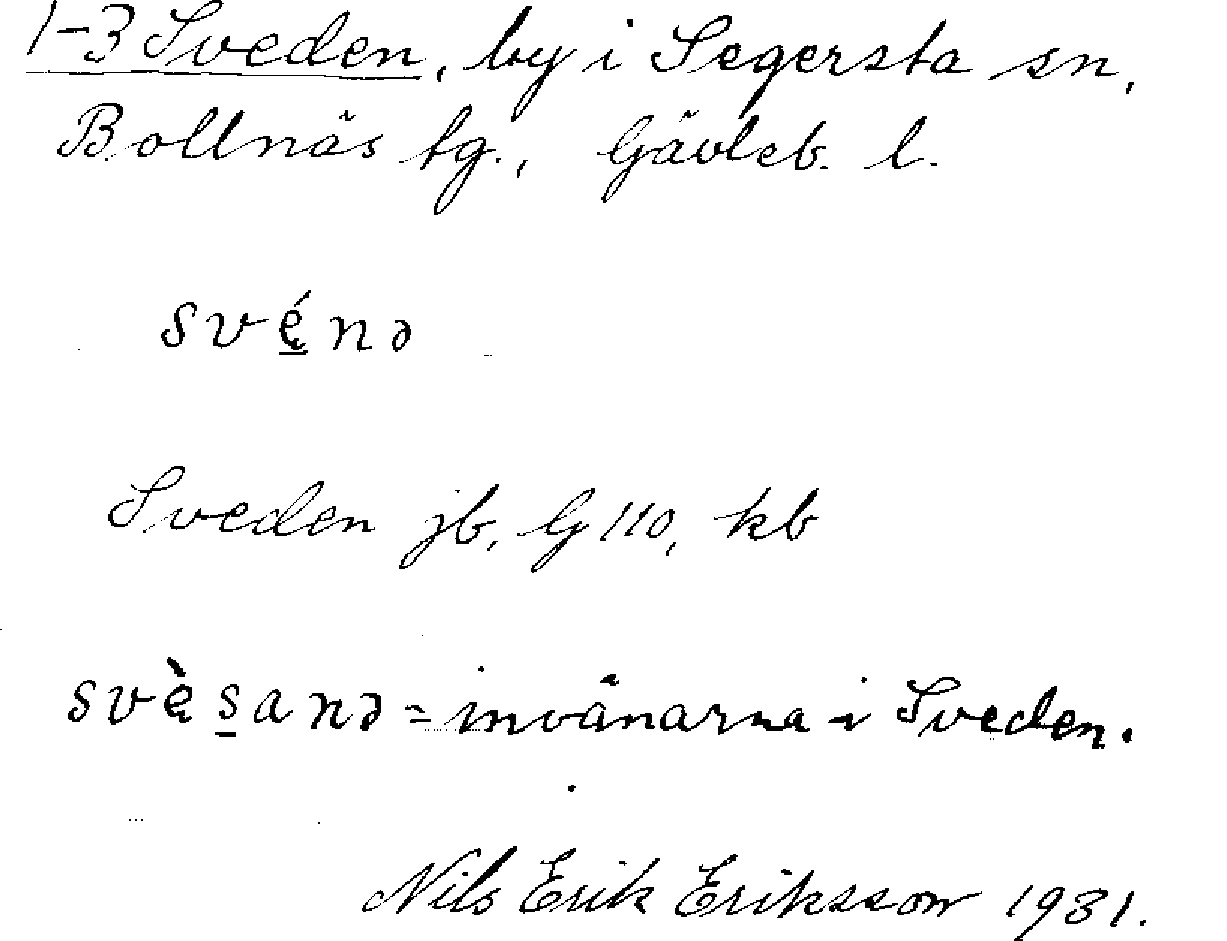 1-3 Sveden, by i Segersta sn,
Bollnäs tg., Gävleb. l.
svę́nə
Sveden jb, G 110, kb
svę̀s̲anə = invånarna i Sveden.
Nils Erik Eriksson 1931.